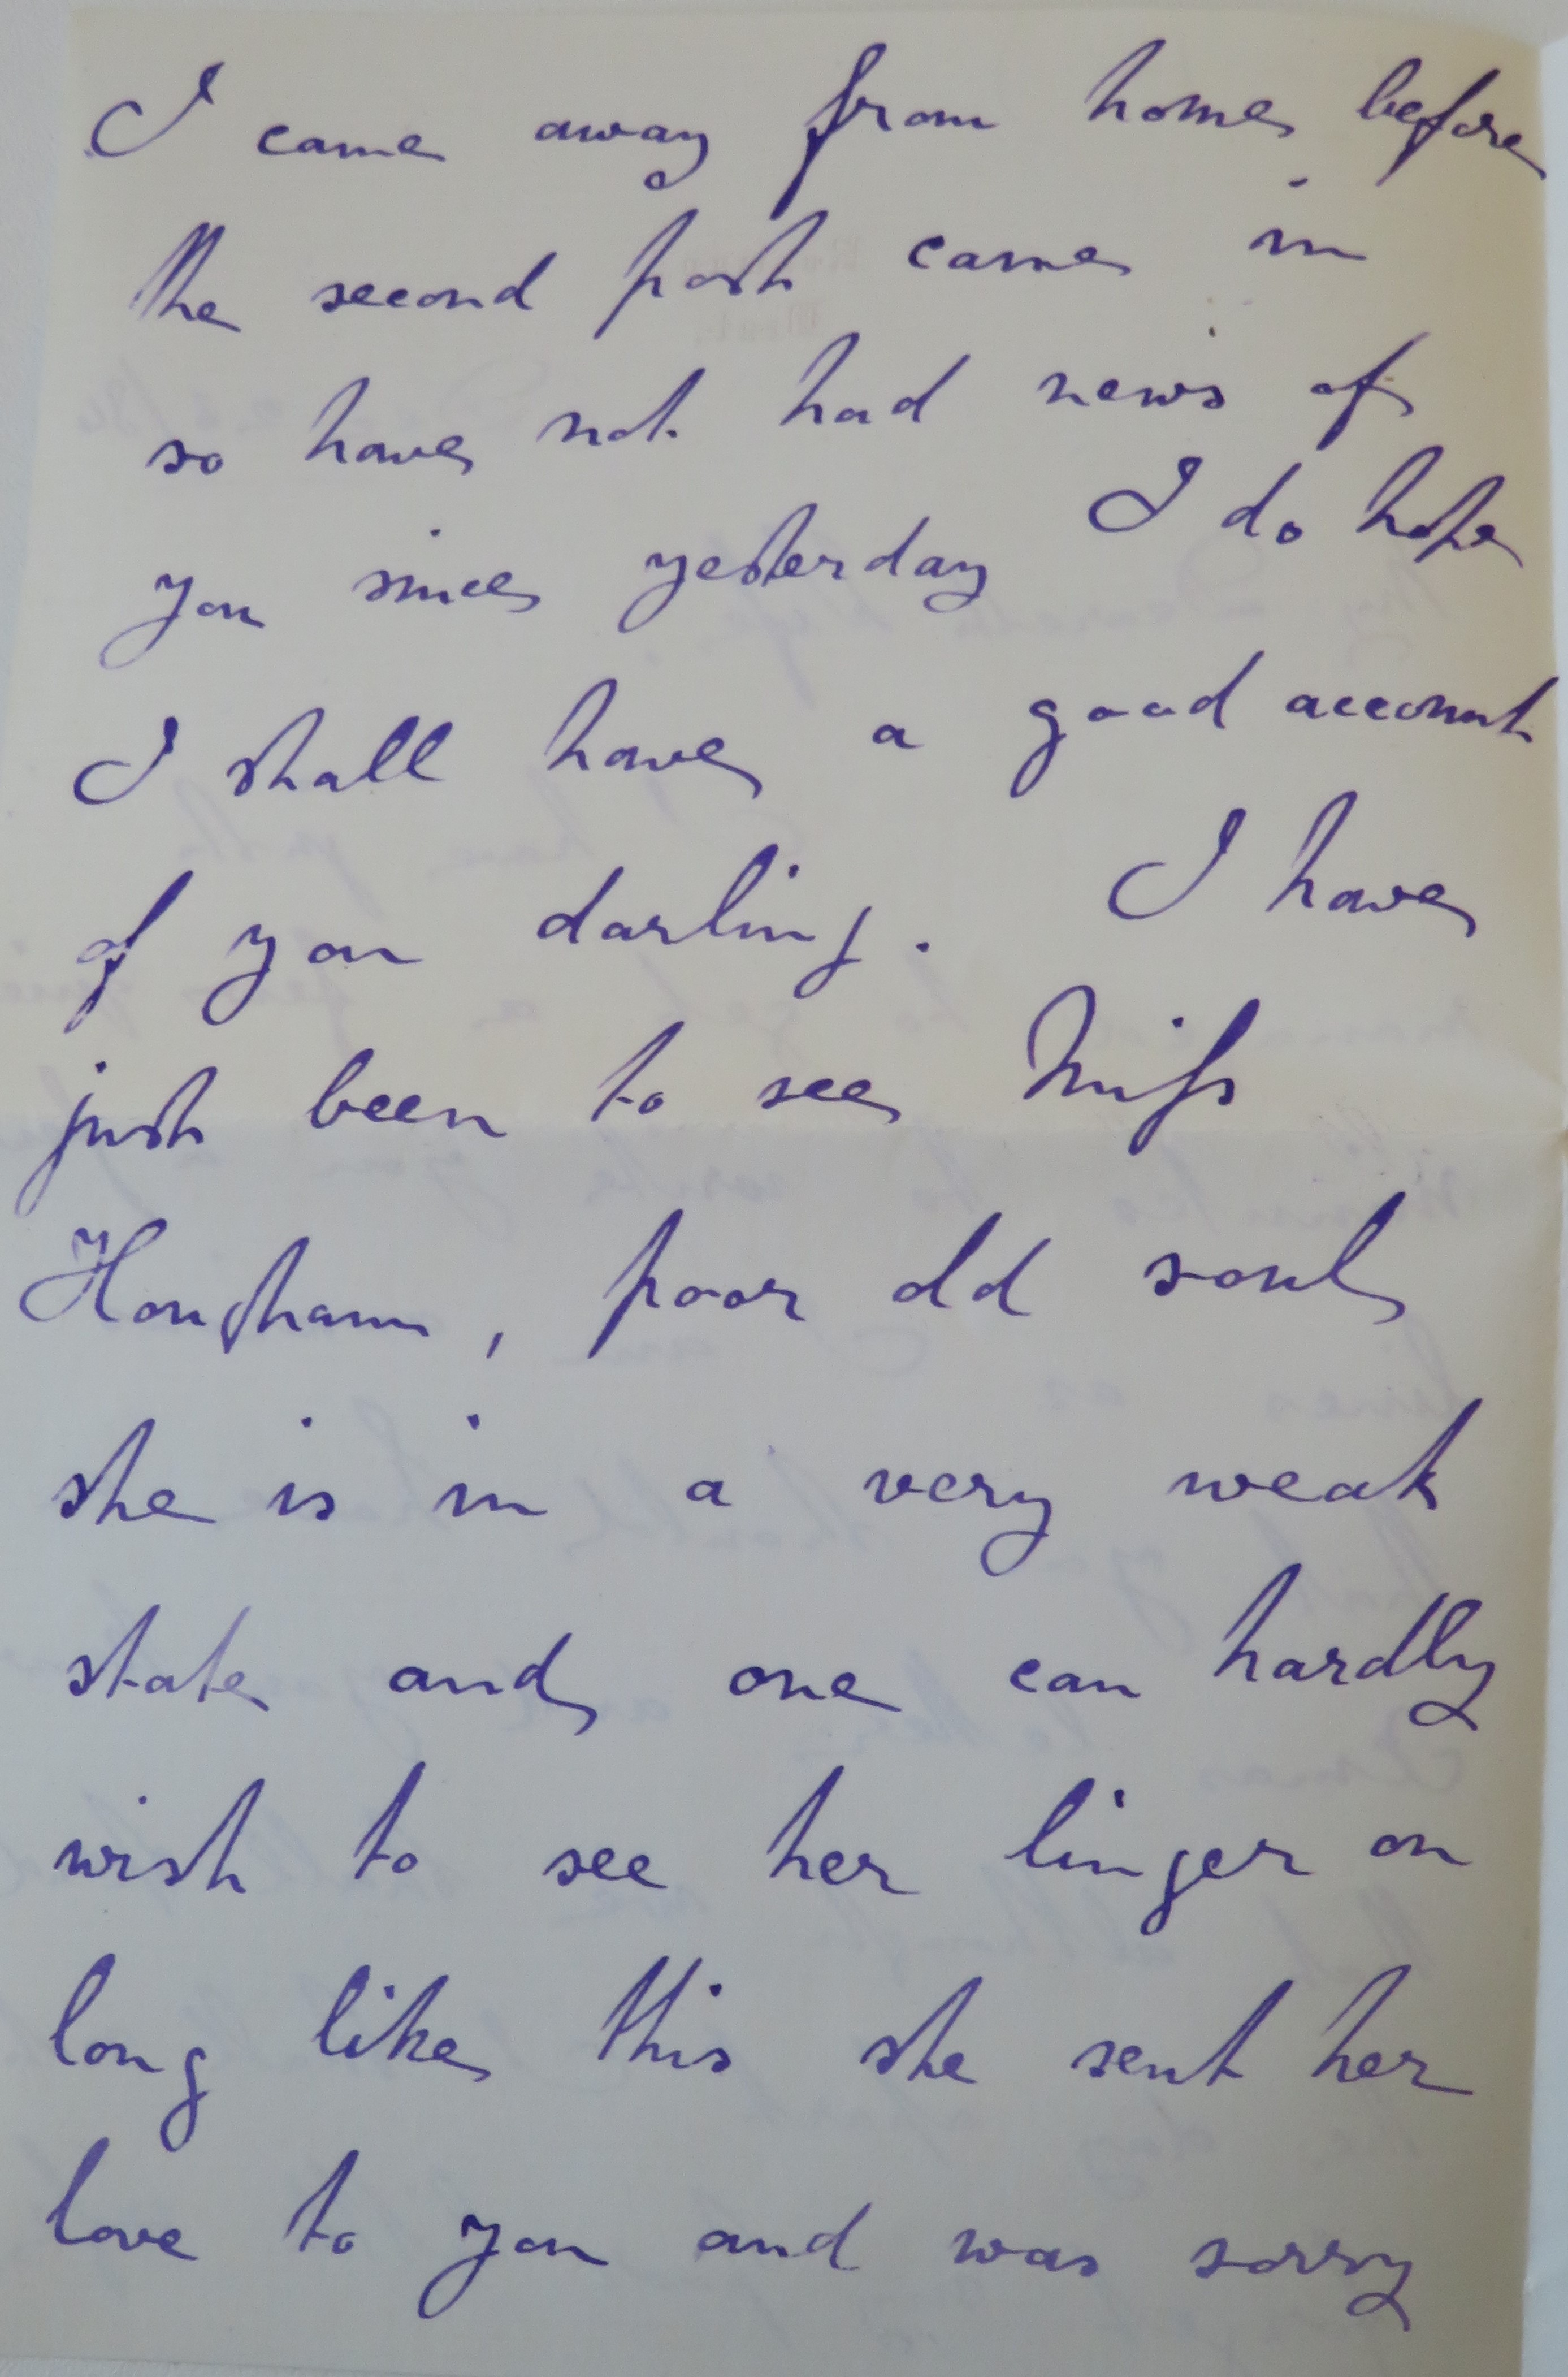 I came away from home before
the second post came in
so have not had news of
you since yesterday I do hope
I shall have a good account
of you darling. I have
just been to see Miss
, poor old soul
she is in a very weak
state and one can hardly
wish to see her linger on
long like this she sent her
love to you and was sorry